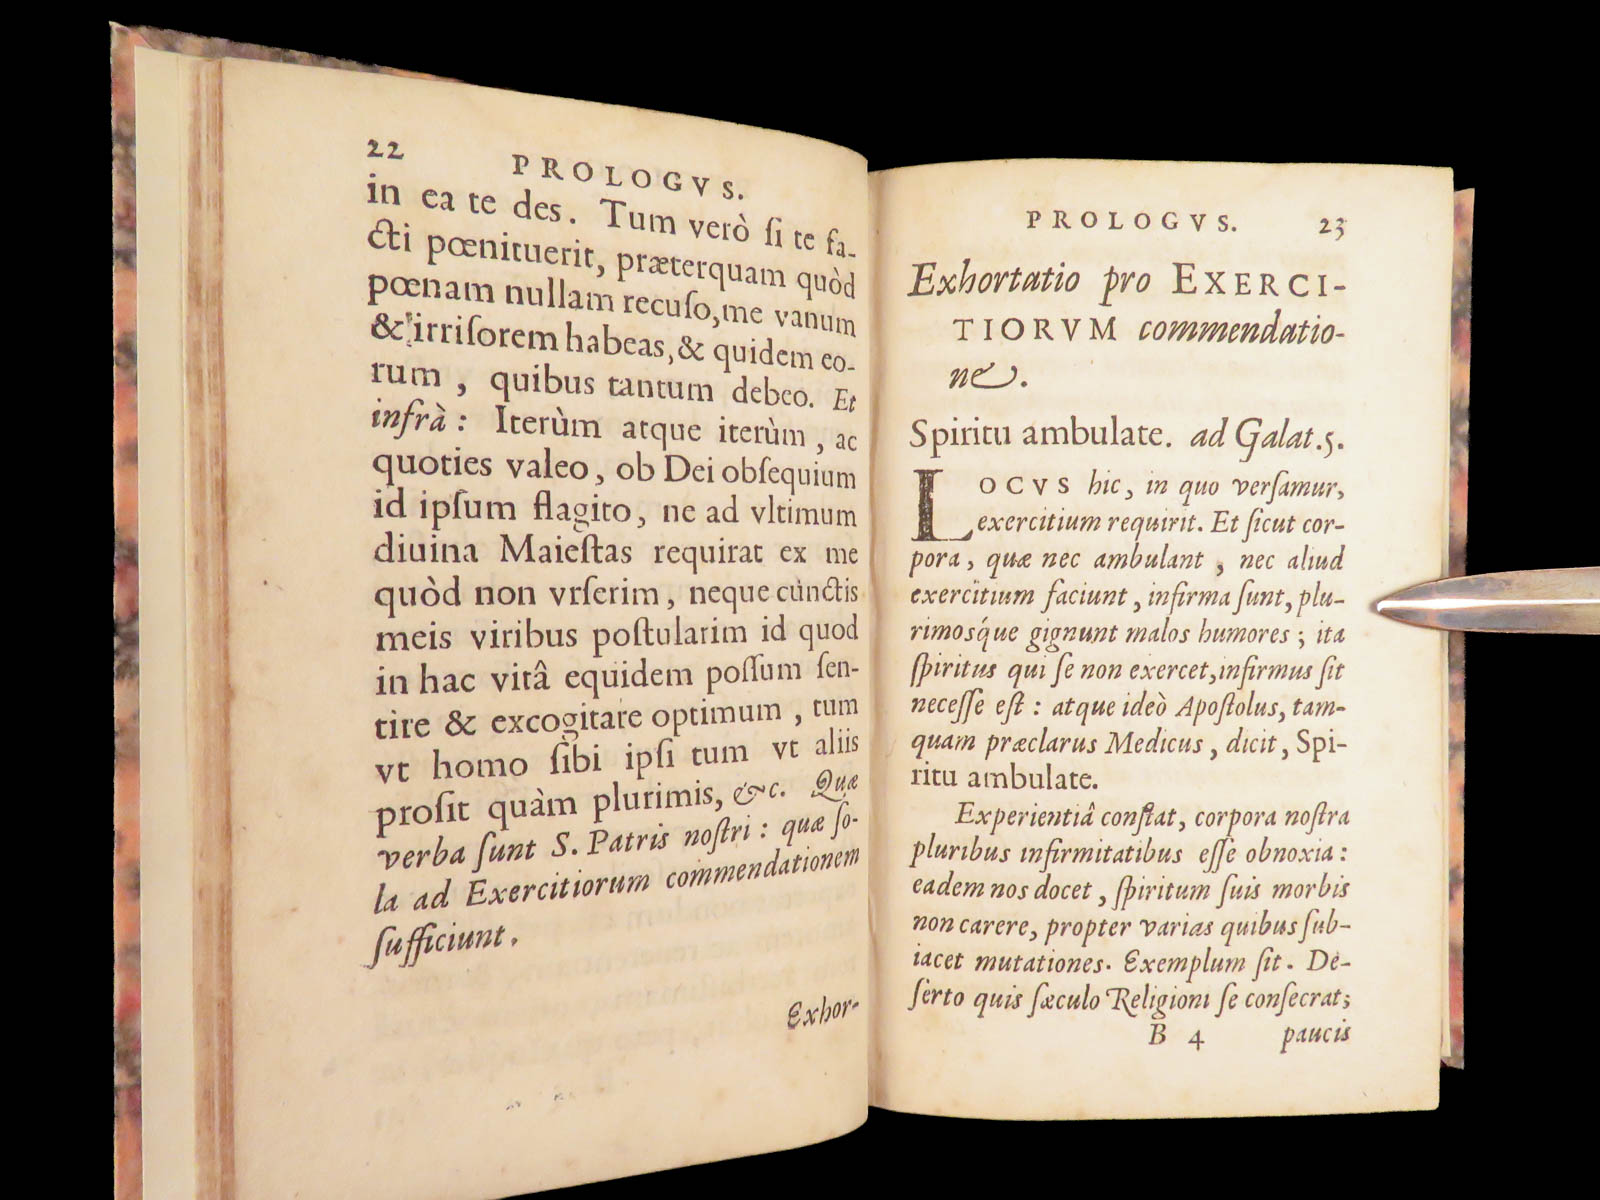 22
PROLOGVS.
in ea te des. Tum verò ſi te fa-
cti pœnituerit, præterquam quòd
pœnam nullam recuſo, me vanum
& irriſorem habeas, & quidem eo-
rum, quibus tantum debeo. Et
infrà: Iterùm atque iterùm, ac
quoties valeo, ob Dei obſequium
id ipſum flagito, ne ad vltimum
diuina Maieſtas requirat ex me
quòd non vrſerim, neque cunctis
meis viribus poſtularim id quod
in hac vitâ equidem poſſum ſen-
tire & excogitare optimum, tum
vt homo ſibi ipſi tum vt aliis
proſit quàm plurimis, &c. Quæ
verba ſunt S. Patris noſtri: quæ ſo-
la ad Exercitiorum commendationem
ſufficiunt.
Exhor-
PROLOGVS. 23
Exhortatio pro EXERCI-
TIORVM commendatio-
ne.
Spiritu ambulate. ad Galat. 5.
LOCVS hic, in quo verſamur,
exercitium requirit. Et ſicut cor-
pora, quæ nec ambulant, nec aliud
exercitium faciunt, infirma ſunt, plu-
rimoſq́ue gignunt malos humores; ita
ſpiritus qui ſe non exercet, infirmus ſit
neceſſe eſt: atque ideò Apoſtolus, tam-
quam præclarus Medicus, dicit, Spi-
ritu ambulate.
Experientiâ conſtat, corpora noſtra
pluribus infirmitatibus eſſe obnoxia:
eadem nos docet, ſpiritum ſuis morbis
non carere, propter varias quibus ſub-
iacet mutationes. Exemplum ſit. De-
ſerto quis ſæculo Religioni ſe conſecrat;
B 4 paucis